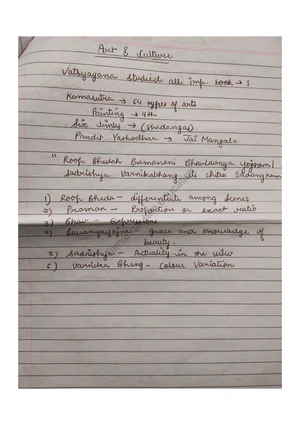 Art & Culture
Vatsyayana studied all imp. book → s
Kamasutra → 64 types of arts
Painting → 4th
Six limbs → (shadangas)
Pandit Yashodhar → Jai Mangala
" Roop Bhedah Pramanani Bhavlavnya Yojnam |
Sadrishya Varnikabhang iti chitra Sadangkam
1) Roop Bheda - differentiate among Scenes
2) Praman - Proportion or exact ratio
3) Bhav - Expressions
4) Lavanyayojna - grace and knowledge of
beauty.
5) Sadrishya - Actuality in the view
6) Varnika Bhang - Colour Variation